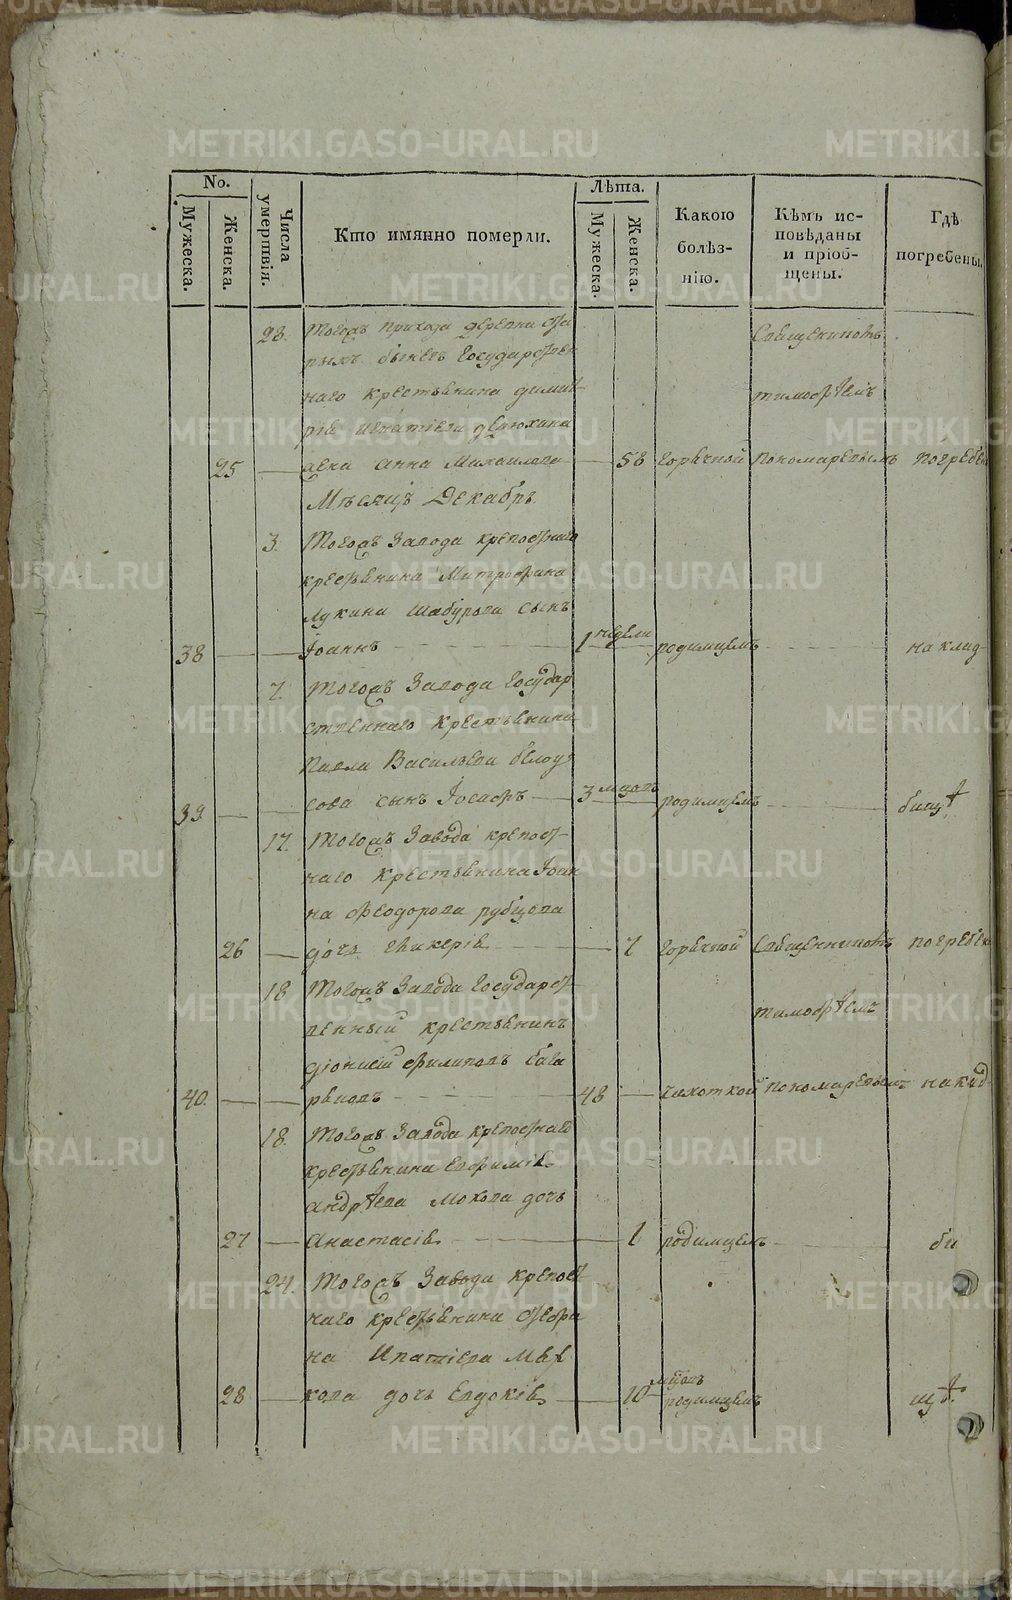 METRIKI.GASO-URAL.RU
No.
Лѣта.
Мужеска.
Женска.
Числа умертвія.
Кто имянно померли.
Мужеска.
Женска.
Какою болѣз-нію.
Кѣмъ ис-повѣданы и пріоб-щены.
Гдѣ погребены.
23. Тогожъ прихода деревни Ста
рыхъ Государствен
наго крестьянина Димит
рія Игнатіева
25 Анна Михаилова 58 горячкой Пономаревымъ погребен
Священникомъ
Тимофѣемъ
Мѣсяцъ Декабрь
3. Тогожъ Завода крепостнаго
крестьянина Митрофана
Лукина Шабурова сынъ
38 Іоаннъ 1 недели родимцемъ на клад-
7. Тогожъ Завода Государ
ственнаго крестьянина
Павла Васильева Белоу
39 сова сынъ Іосафъ 3 родимцемъ бищѣ
17. Тогожъ Завода крепост-
наго крестьянина Іоан
на Феодорова Рубцова
26 дочь Гликерія 7 горячкой Священникомъ погребен
18 Тогожъ Завода Государст-
венный крестьянинъ Тимофѣемъ
Діонисій Филиповъ
40. 48 чахоткой Пономаревымъ на клад-
18. Тогожъ Завода крепостнаго
крестьянина Евфимія
Андрѣева Мохова дочь
27 Анастасія 1 родимцемъ би
24. Тогожъ Завода крепост
наго крестьянина Стефа
на Ипатіева Мя
28 кова дочь Евдокія 10 родимцемъ щѣ.